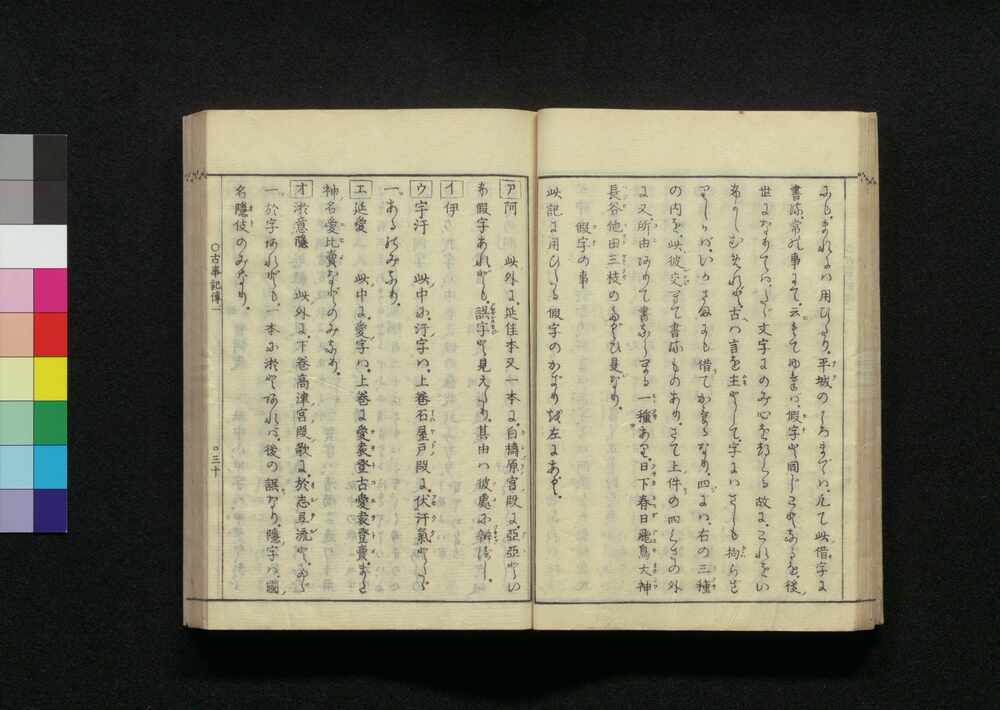 にも、まれには用ひたり、平城のころまでは、凡て此借字に
書ること常の事にて、云もてゆけば、假字と同じことなるを、後
世になりては、たゞ文字にのみ心をつくる故に、これをい
ぶかしむめれど、古は言を主として、字にはさしも拘らざ
りしかば、いかさまにも借てかけるなり、四には、右の三種
の内を、此彼交へて書るものあり、さて上件の四くさの外
に又所由ありて書ならへる一種あり、日下春日飛鳥大神
長谷他田三枝のたぐひ是なり、
假字の事
此記に用ひたる假字のかぎりを左にあぐ、
ア 阿 此外に、延佳本又一本に、白檮原宮段に、亞亞とい
ふ假字あれども、誤字と見えたり、其由は彼處に辨べし、
イ 伊
ウ 宇汙 此中に、汙字は、上巻石屋戸段に、伏汙氣とたゞ
一ッあるのみなり、
エ 延愛 此中に、愛字は、上巻に愛袁登古愛袁登賣、また
神名愛比賣などのみなり、
オ 淤意隱 此外に、下巻高津宮段歌に、於志弖流と、たゞ
一ッ於字あれども、一本に淤とあれば、後の誤なり、隱字は、國
名隱伎のみなり、
○古事記傳一
○三十